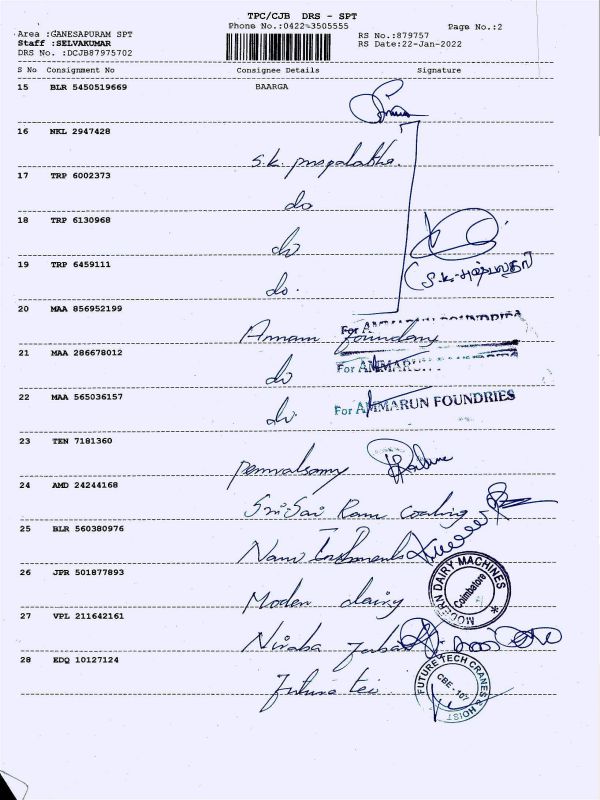 TPC/CJB DRS - SPT
Phone No.:0422-3505555 Page No.:2
Area :GANESAPURAM SPT RS No.:879757
Staff :SELVAKUMAR RS Date:22-Jan-2022
DRS No. :DCJB87975702
S No Consignment No Consignee Details Signature
15 BLR 5450519669 BAARGA
16 NKL 2947428
S.K. puspalatha.
17 TRP 6002373
do
18 TRP 6130968
do
19 TRP 6459111
do.
(S.K.
20 MAA 856952199
For AMMARUN FOUNDRIES
foundary
21 MAA 286678012
do For AMMARUN
22 MAA 565036157
do For AMMARUN FOUNDRIES
23 TEN 7181360
24 AMD 24244168
Sri Sai Ram Coating
25 BLR 560380976
26 JPR 501877893
MODERN DAIRY MACHINES
Coimbatore
Moden dairy
27 VPL 211642161
28 EDQ 10127124
FUTURE TECH CRANES & HOIST
CBE - 107
Future tec